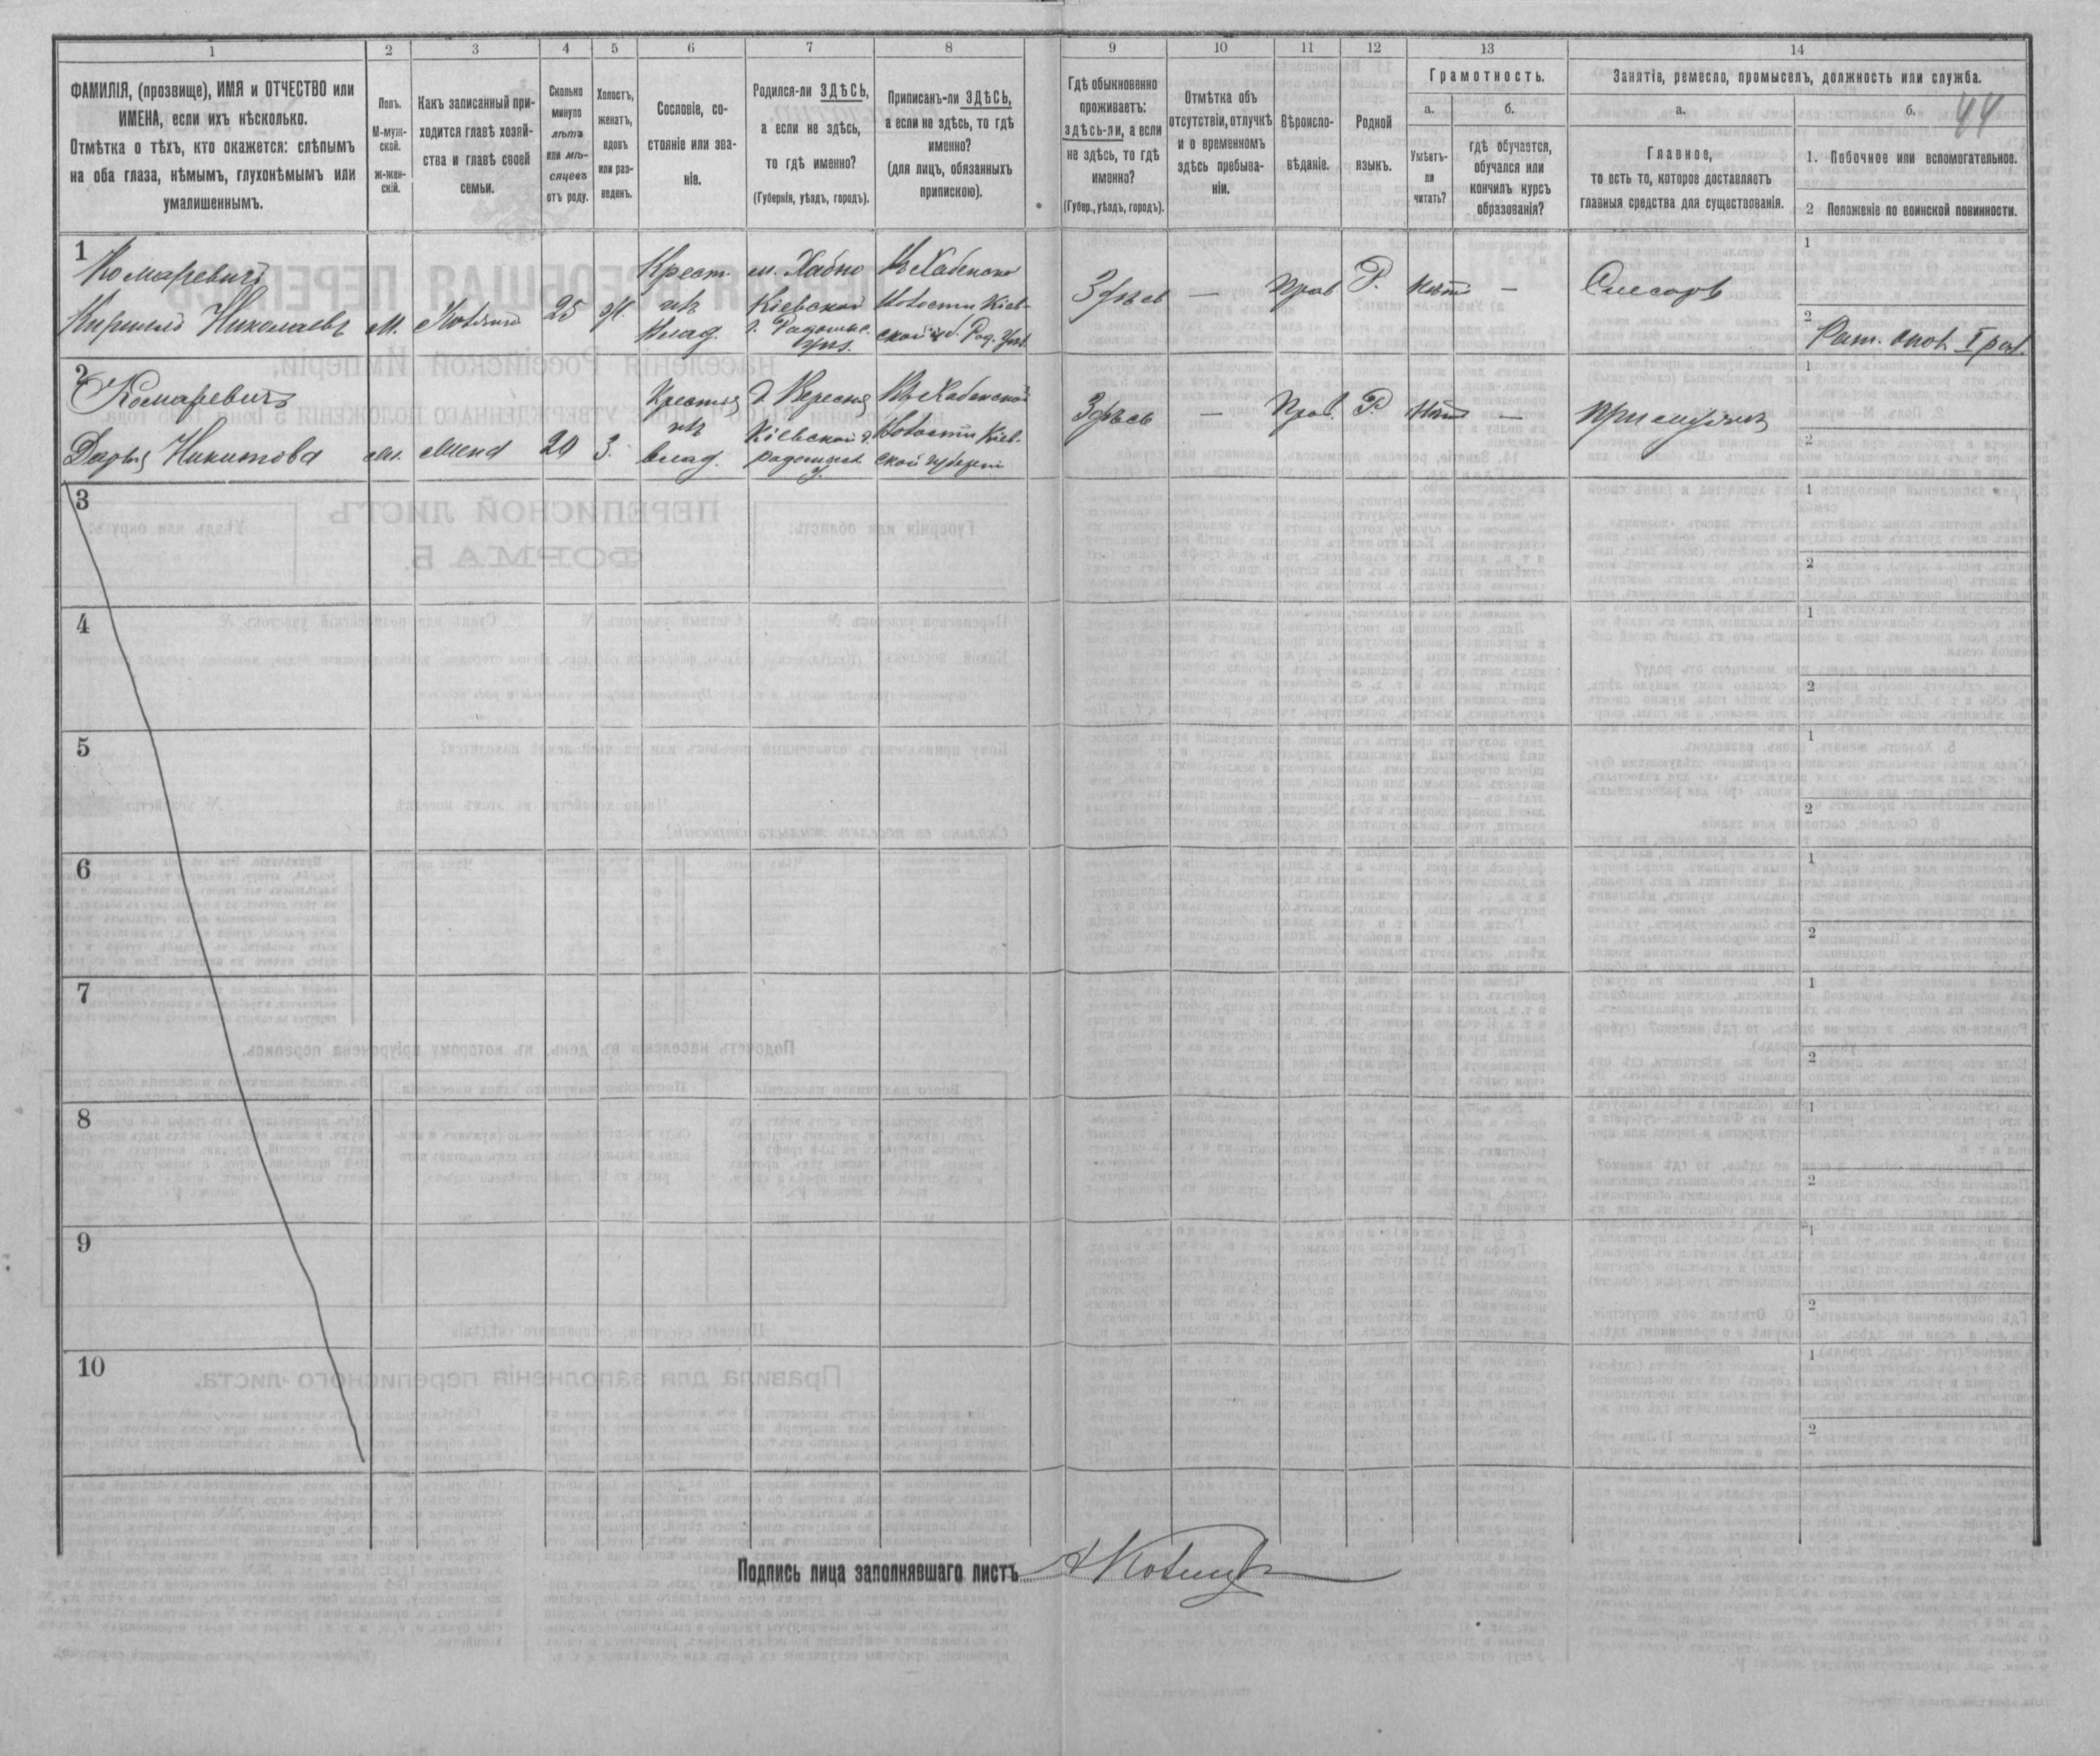 1
2
3
4
5
6
7
8
9
10
11
12
13
14
ФАМИЛІЯ, (прозвище), ИМЯ и ОТЧЕСТВО или
ИМЕНА, если ихъ нѣсколько.
Отмѣтка о тѣхъ, кто окажется: слѣпымъ
на оба глаза, нѣмымъ, глухонѣмымъ или
умалишеннымъ.
Полъ.
М-муж-
ской.
Ж-жен-
скій.
Какъ записанный при-
ходится главѣ хозяй-
ства и главѣ своей
семьи.
Сколько
минуло
лѣтъ
или мѣ-
сяцевъ
отъ роду.
Холостъ,
женатъ,
вдовъ
или раз-
веденъ.
Сословіе, со-
стояніе или зва-
ніе.
Родился-ли ЗДѢСЬ,
а если не здѣсь,
то гдѣ именно?
(Губернія, уѣздъ, городъ).
Приписанъ-ли ЗДѢСЬ,
а если не здѣсь, то гдѣ
именно?
(для лицъ, обязанныхъ
припискою).
Гдѣ обыкновенно
проживаетъ:
здѣсь-ли, а если
не здѣсь, то гдѣ
именно?
(Губер., уѣздъ, городъ).
Отмѣтка объ
отсутствіи, отлучкѣ
и о временномъ
здѣсь пребыва-
ніи.
Вѣроиспо-
вѣданіе.
Родной
языкъ.
Грамотность.
а.
Умѣетъ-
ли
читать?
б.
гдѣ обучается,
обучался или
кончилъ курсъ
образованія?
Занятіе, ремесло, промыселъ, должность или служба.
а.
Главное,
то есть то, которое доставляетъ
главныя средства для существованія.
б.
44
1. Побочное или вспомогательное.
2 Положеніе по воинской повинности.
1
Комаревичъ
Кирилло Николаевъ
м.
25
Ж.
Крест.
изъ
влад.
м. Хабно
Кіевской
г. Радомыс.
уѣз.
Въ Хабенской
Волости Кіев-
ской губ. Рад. уѣз.
Здѣсь
—
Прав
Р.
Нѣт
—
Слесарь
1
2
Рат. опол. I раз.
2
Комаревичъ
Дарья Никитова
жена
20
З.
Крестья
изъ
влад.
Кіевской г.
радомысл.
у.
Въ Хабенской
Волости Кіев-
ской губерніи
Здѣсь
—
Прав.
Р.
Нѣт
—
1
2
3
1
2
4
1
2
5
1
2
6
1
2
7
1
2
8
1
2
9
1
2
10
1
2
Подпись лица заполнявшаго листъ